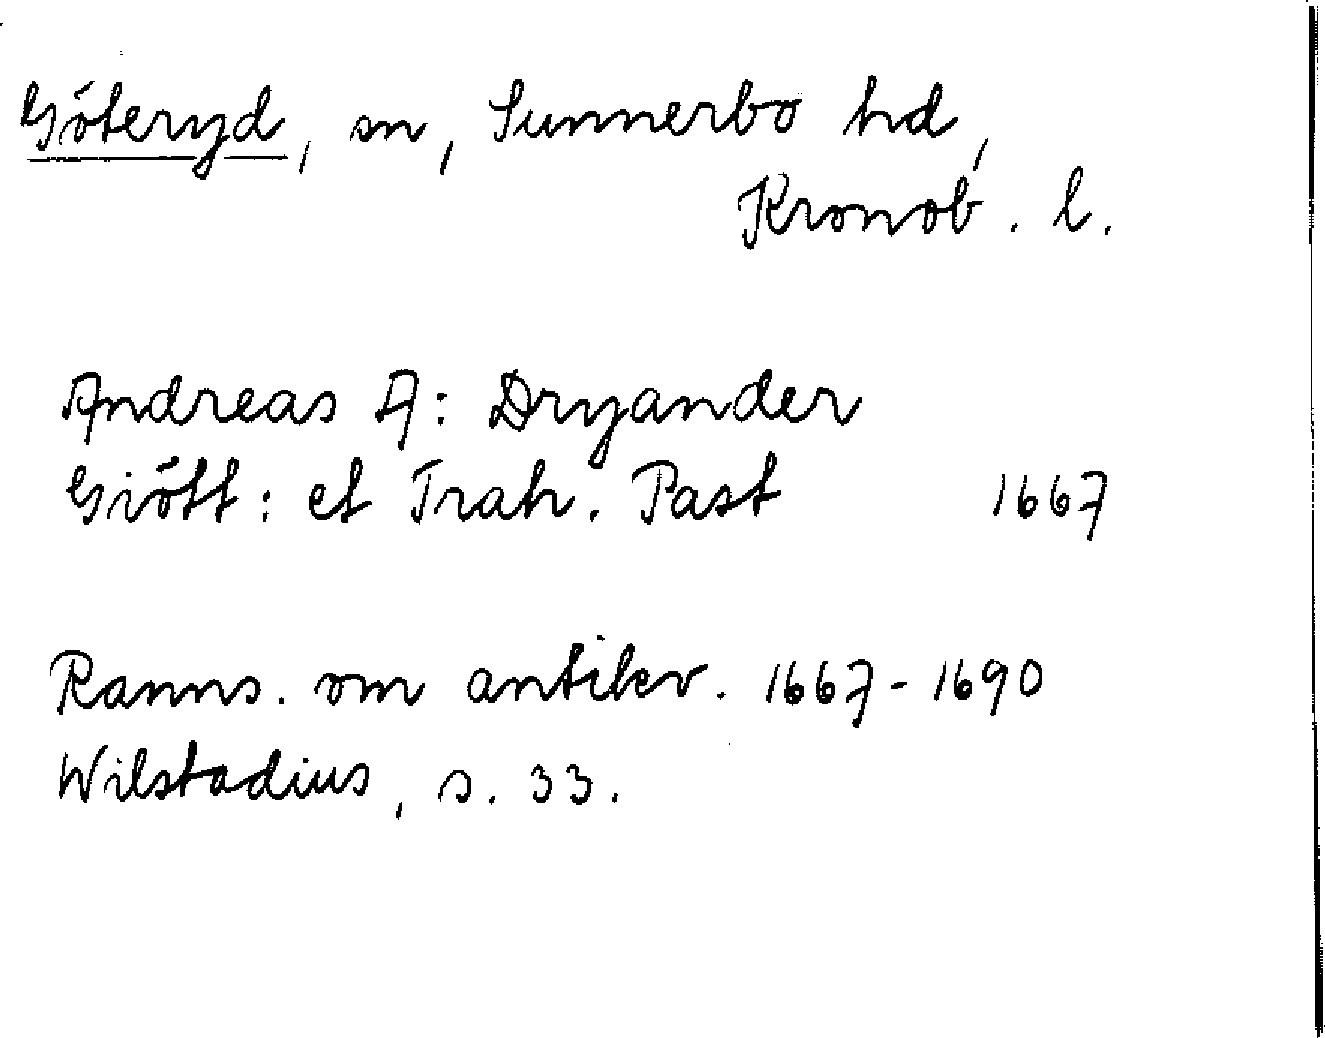 Göteryd, sn, Sunnerbo hd,
Kronob. l.
Andreas A: Dryander
Giött: et Trah. Past 1667
Ranns. om antikv. 1667-1690
Wilstadius, s. 33.